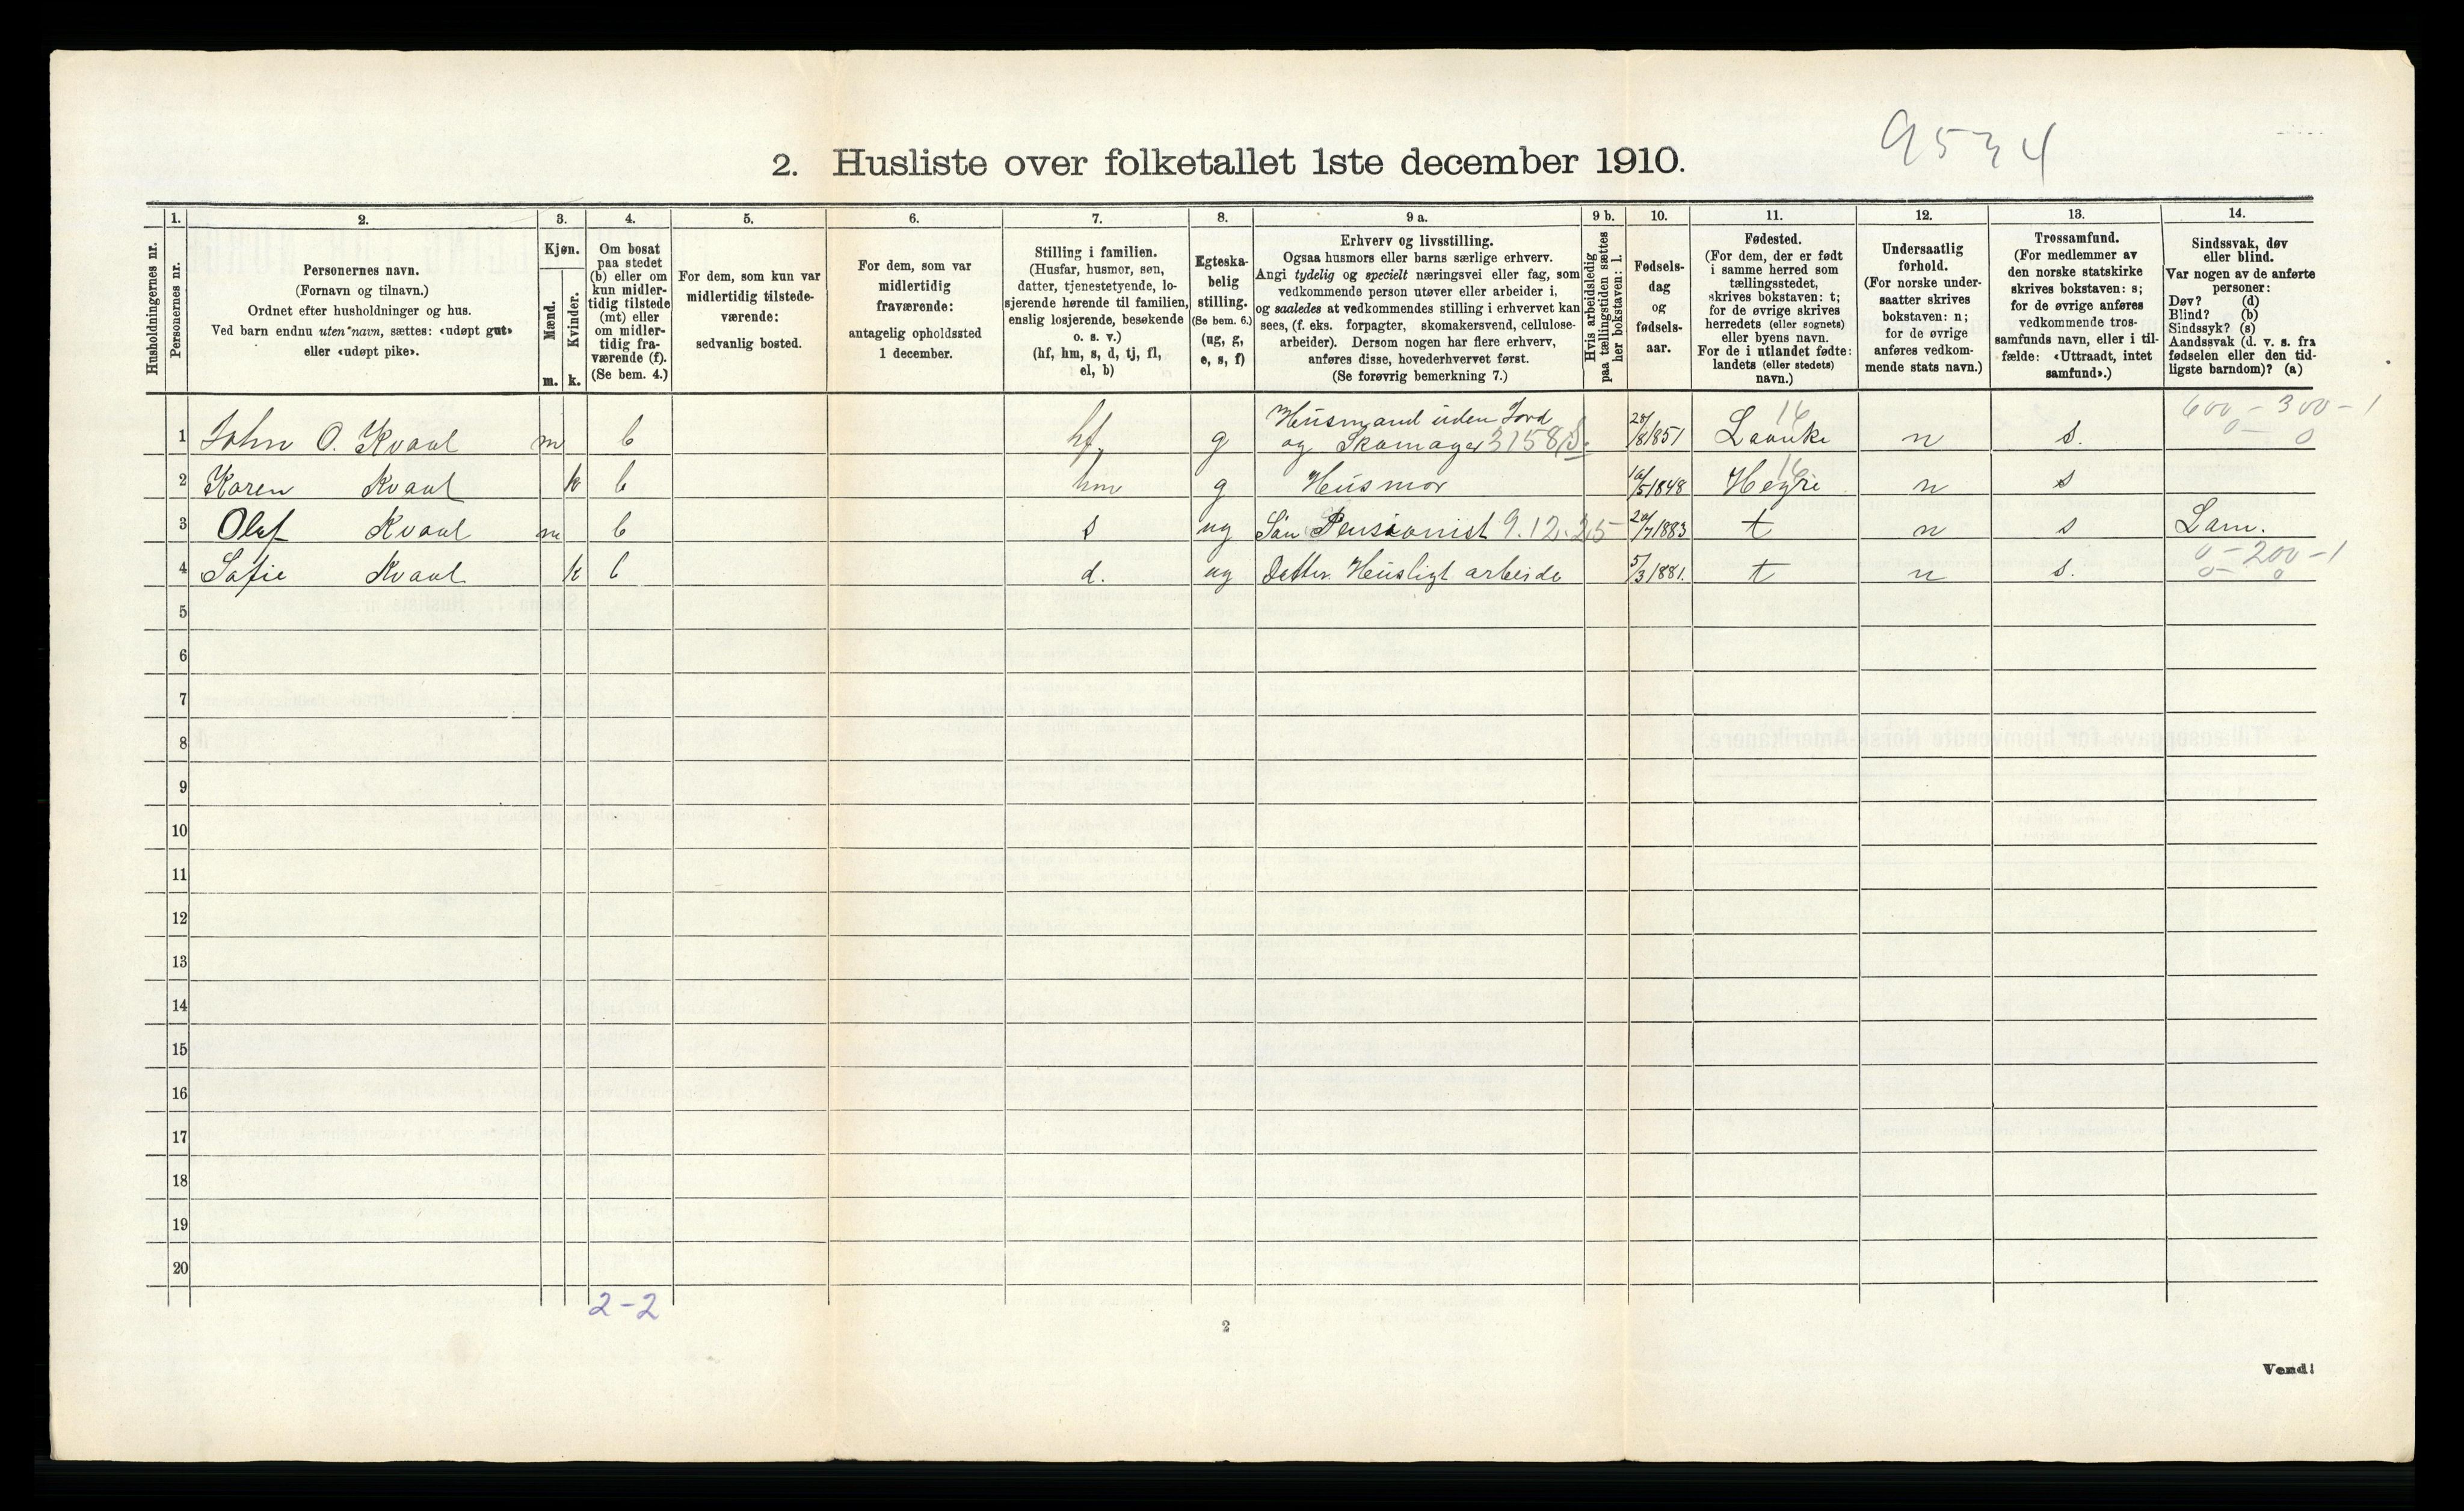 9534
2. Husliste over folketallet 1ste december 1910.
Husholdningernes nr.
1.
Personernes nr.
2.
Personernes navn.
(Fornavn og tilnavn.)
Ordnet efter husholdninger og hus.
Ved barn endnu uten navn, sættes: «udøpt gut»
eller «udøpt pike».
3.
Kjøn.
Mænd.
Kvinder.
m. k.
4.
Om bosat
paa stedet
(b) eller om
kun midler-
tidig tilstede
(mt) eller
om midler-
tidig fra-
værende (f).
(Se bem. 4.)
5.
For dem, som kun var
midlertidig tilstede-
værende:
sedvanlig bosted.
6.
For dem, som var
midlertidig
fraværende:
antagelig opholdssted
1 december.
7.
Stilling i familien.
(Husfar, husmor, søn,
datter, tjenestetyende, lo-
sjerende hørende til familien,
enslig losjerende, besøkende
o. s. v.)
(hf, hm, s, d, tj, fl,
el, b)
8.
Egteska-
belig
stilling.
(Se bem. 6.)
(ug, g,
e, s, f)
9 a.
Erhverv og livsstilling.
Ogsaa husmors eller barns særlige erhverv.
Angi tydelig og specielt næringsvei eller fag, som
vedkommende person utøver eller arbeider i,
og saaledes at vedkommendes stilling i erhvervet kan
sees, (f. eks. forpagter, skomakersvend, cellulose-
arbeider). Dersom nogen har flere erhverv,
anføres disse, hovederhvervet først.
(Se forøvrig bemerkning 7.)
9 b.
Hvis arbeidsledig
paa tællingstiden sættes
her bokstaven: l.
10.
Fødsels-
dag
og
fødsels-
aar.
11.
Fødested.
(For dem, der er født
i samme herred som
tællingsstedet,
skrives bokstaven: t;
for de øvrige skrives
herredets (eller sognets)
eller byens navn.
For de i utlandet fødte:
landets (eller stedets)
navn.)
12.
Undersaatlig
forhold.
(For norske under-
saatter skrives
bokstaven: n;
for de øvrige
anføres vedkom-
mende stats navn.)
13.
Trossamfund.
(For medlemmer av
den norske statskirke
skrives bokstaven: s;
for de øvrige anføres
vedkommende tros-
samfunds navn, eller i til-
fælde: «Uttraadt, intet
samfund».)
14.
Sindssvak, døv
eller blind.
Var nogen av de anførte
personer:
Døv? (d)
Blind? (b)
Sindssyk? (s)
Aandssvak (d. v. s. fra
fødselen eller den tid-
ligste barndom)? (a)
Husmand uden Jord 16 600 - 300 - 1
1 John O. Kvaal m b hf g og Skomager 3158 S. 28/8 1851 Laanke n s. 0 - 0
16
2 Karen Kvaal k b hm g Husmor /5 1848 Hegre n s
3 Olaf Kvaal m b s ug Søn Pensionist 9.12.25 /7 1883 t n s Lam.
0 - 200 - 1
4 Sofie Kvaal k b d. ug Datter. Husligt arbeide 5/3 1881. t n s. 0 - 0
5
6
7
8
9
10
11
12
13
14
15
16
17
18
19
20
2 - 2
2
Vend!